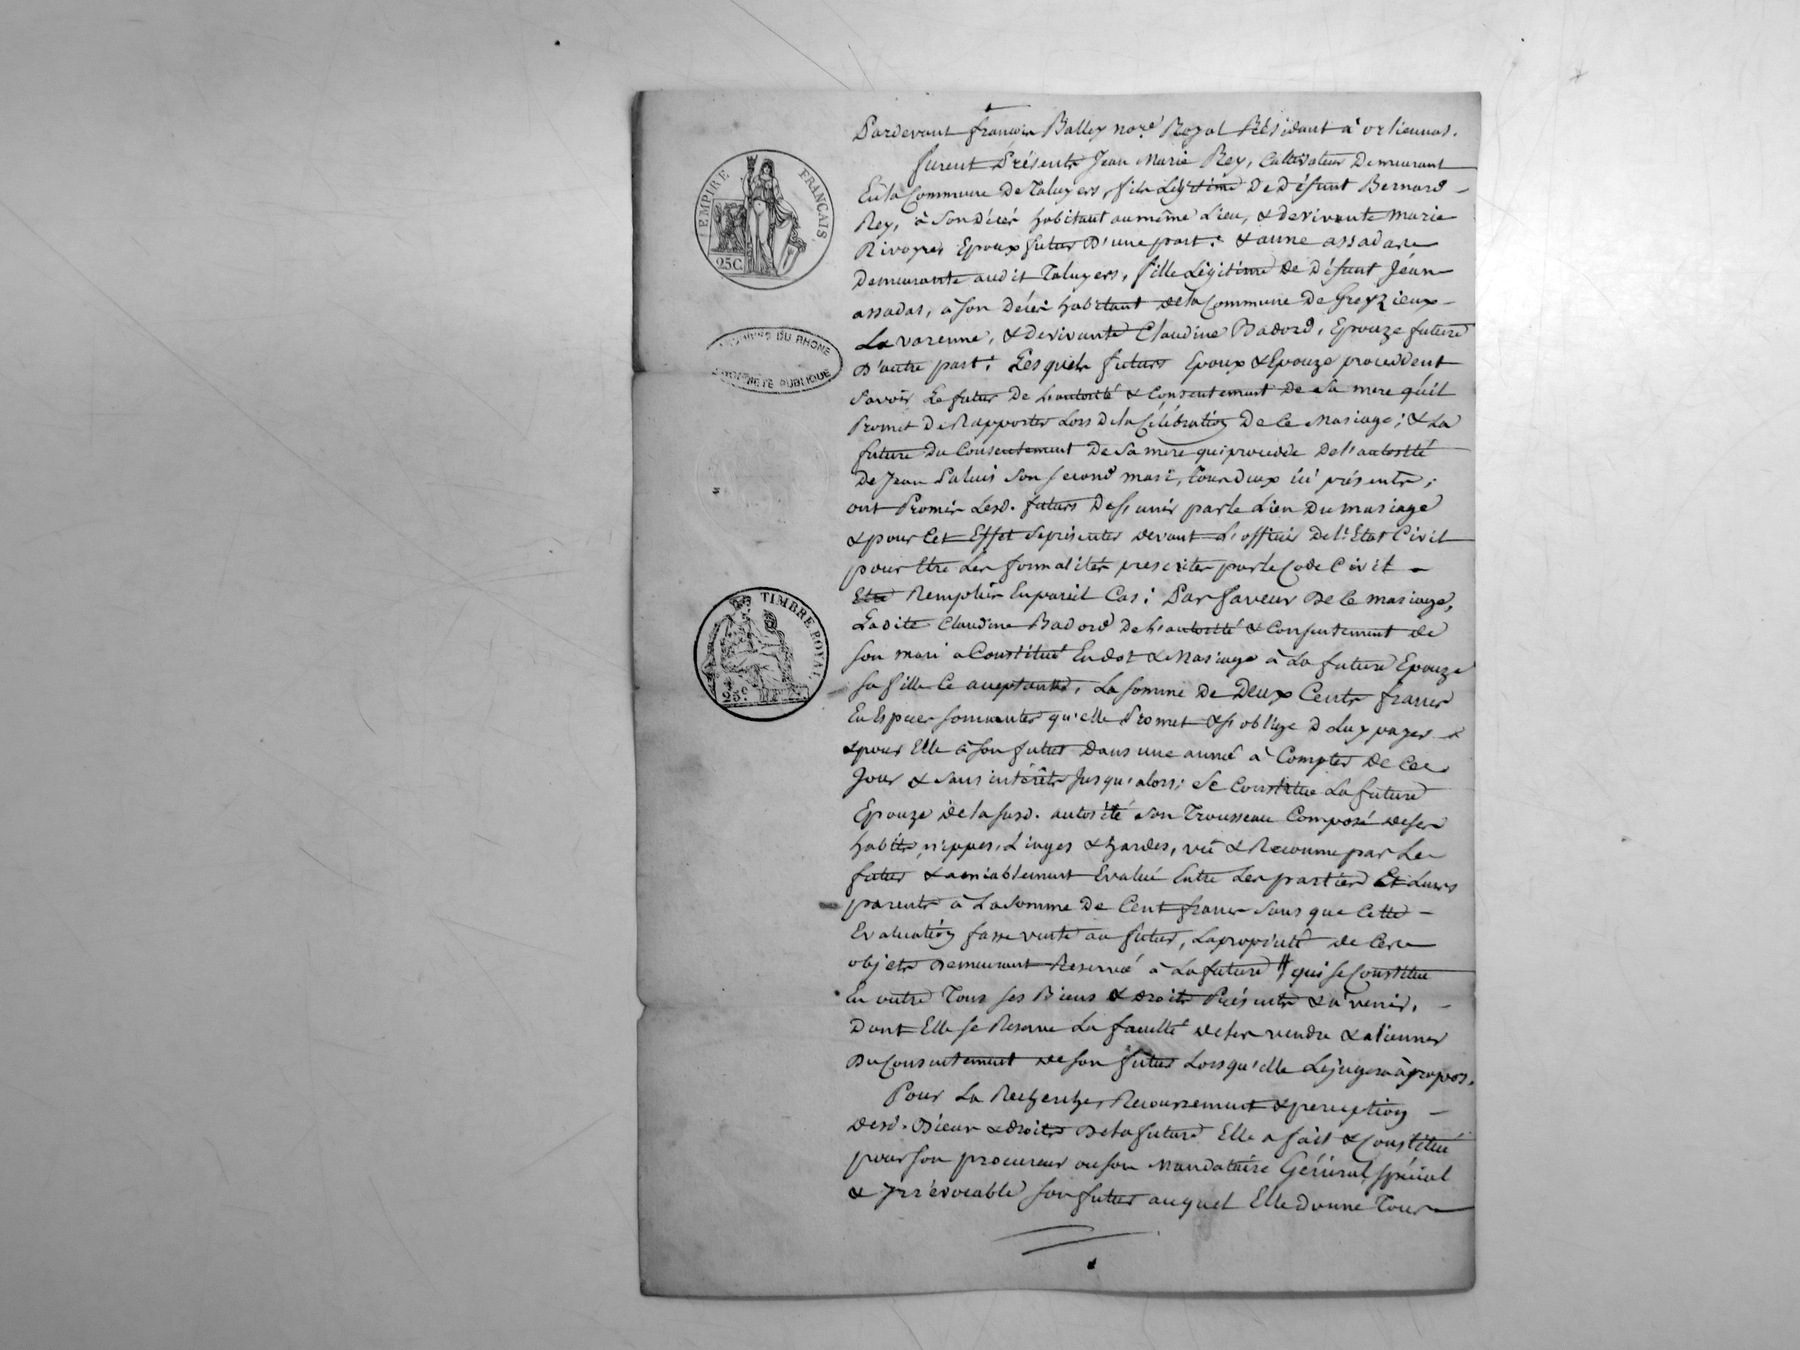 Pardevant françois Balley no.re Royal Résidant à orliennas.
furent Présents Jean Marie Rey, Cultivateur Demeurant
En la Commune De Taluyers, fils Légitime De Défunt Bernard
Rey, à Son décès habitant au même Lieu, & de vivante Marie
Rivoyres Epoux futur D'une part : & anne assadas
Demeurante audit Taluyers, fille Légitime de Défunt Jéan
assadas, à son Décès habitant de la Commune De Greyzieux
La varenne, & de vivante Claudine Badord, Epouze future
D'autre part : Lesquels futurs Epoux & Epouze procedent
Savoir Le futur De l'autorité & Consentement De sa mere qu'il
Promet De Rapporter Lors De la Célébration De Ce Mariage ; & La
future Du Consentement De Sa mere qui procede De l'autorité
De Jean Son second mari, tous Deux ici présents ;
ont Promis Lesd. futurs De s'unir par le Lien Du mariage
& pour Cet Effet se présenter devant L'officier De l'Etat Civil
pour Etre Les formalités prescrites par le Code Civil
Etre Remplies En pareil Cas : Par faveur De Ce mariage,
Ladite Claudine Badord De l'autorité & Consentement de
son mari a Constitué En dot & Mariage à La future Epouze
sa fille Ce acceptante, La somme de Deux Cents francs
En Espèces sonnantes qu'elle Promet & s'oblige De Luy payer
& pour Elle à son futur Dans une année à Compter De Ce
Jour & sans intérêts Jusqu'alors ; Se Constitue La future
Epouze de la susd. autorité Son Trousseau Composé de ses
habits, nippes, Linges & hardes, vû & Reconnu par Le
futur & amiablement Evalué Entre Les parties Et Leurs
parents à La Somme De Cent francs Sans que Cette
Evaluation fasse vente au futur, La propriété de Ces
objets Demeurant Reservée à La future // qui se Constitue
En outre Tous ses Biens & droits Présents & à venir,
Dont Elle se Reserve La faculté de les vendre & aliener
Du Consentement de son futur Lorsqu'elle Le jugera àpropos.
Pour La Recherche, Recouvrement & perception
desd. Biens & droits De la future Elle a fait & Constitué
pour son procureur ou son Mandataire Général, spécial
& Irrévocable son futur auquel Elle donne Tous
EMPIRE FRANÇAIS.
25C
DU RHONE
PROPRIÉTÉ PUBLIQUE
TIMBRE ROYAL
25c